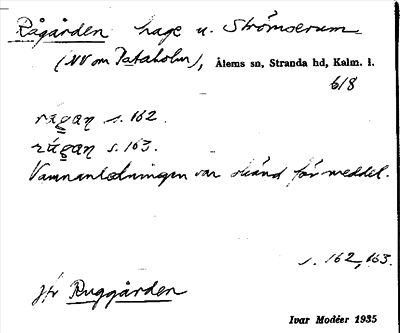 Rågården hage u. Strömserum
(NV om Pataholm), Ålems sn, Stranda hd, Kalm. l.
6/8
rågan s. 162.
rågan s. 163.
Namnanledningen var okänd för meddel.
s. 162, 163.
jfr Ruggården
Ivar Modéer 1935